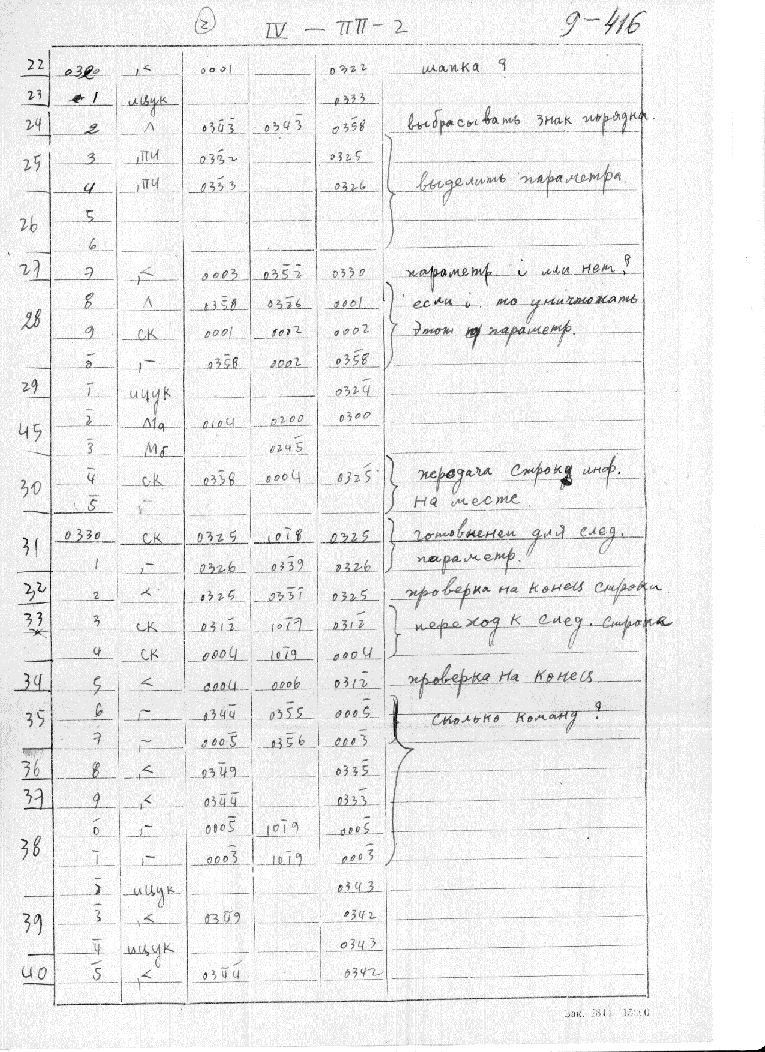 2 IV — ПП - 2 9-416
22 0320 ,< 0001 0322 шапка ?
23 1 ицук 0333
24 2 Λ 034̅3̅ 034̅3̅ 035̅8 выбрасывать знак
25 3 ,ПЧ 035̅2 0325
4 ,ПЧ 035̅3 0326 выделить параметра
26 5
6
27 7 ,< 0003 035̅2̅ 0330 параметр i или нет?
28 8 Λ 035̅8 035̅6 0001 если i то уничтожать
9 СК 0001 0002 0002 этот параметр.
0̅ ,– 035̅8 0002 035̅8
29 1̅ ицук 0324̅
45 2̅ Ма 0104 0200 0300
3̅ Мб 0245̅
30 4̅ СК 035̅8 0004 0325̅ передача строка инф.
5̅ – на месте
31 0330 СК 0325 101̅8 0325 для след.
1 ,– 0326 033̅9 0326 параметр.
32 2 < 0325 033̅1̅ 0325 проверка на конец строки
33 3 СК 0312̅ 101̅7 0312̅ переход к след. строка
4 СК 0004 101̅9 0004
34 5 < 0004 0006 0312̅ проверка на конец
35 6 ,– 034̅4̅ 035̅5 0005̅ сколько команд ?
7 ,– 0005̅ 035̅6 0003̅
36 8 ,< 034̅9 0335̅
37 9 ,< 034̅4̅ 0333̅
38 0̅ ,– 0005̅ 101̅9 0005̅
1̅ ,– 0003̅ 101̅9 0003̅
2̅ ицук 0343
39 3̅ ,< 034̅9 0342
4̅ ицук 0343
40 5̅ ,< 034̅4̅ 0342
Зак.